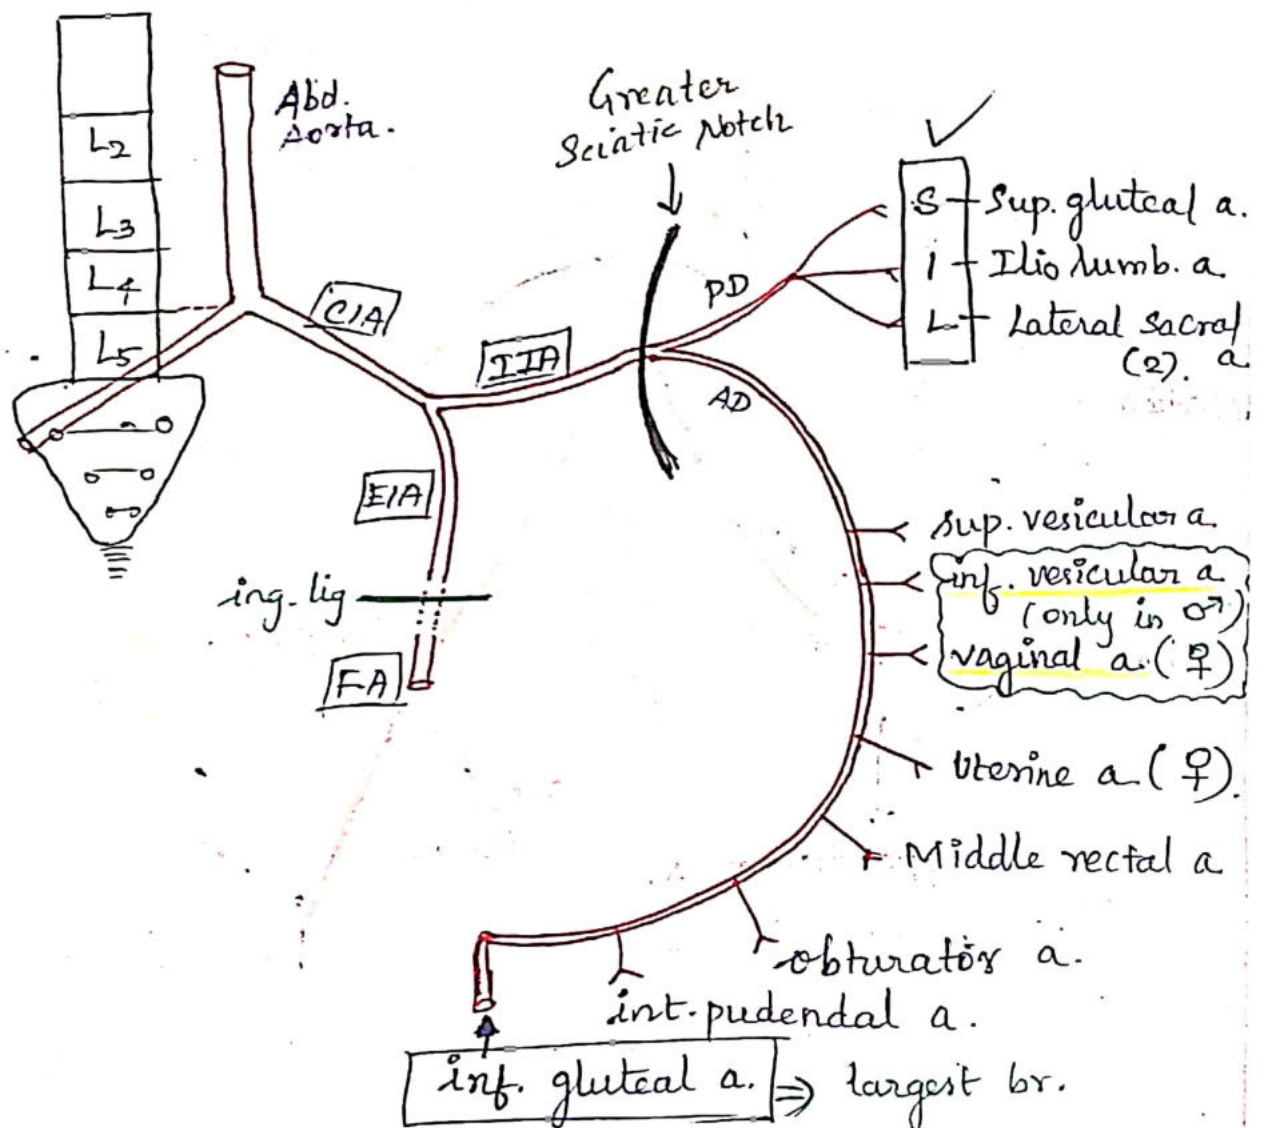 L2
L3
L4
L5
Abd.
Aorta.
CIA
IIA
EIA
ing. lig
FA
Greater
Sciatic Notch
PD
AD
S - Sup. gluteal a.
I - Ilio lumb. a
L - Lateral Sacral
(2). a
sup. vesicular a.
inf. vesicular a
(only in ♂)
vaginal a. (♀)
Uterine a (♀).
Middle rectal a
obturator a.
int. pudendal a.
inf. gluteal a. ⇒ largest br.